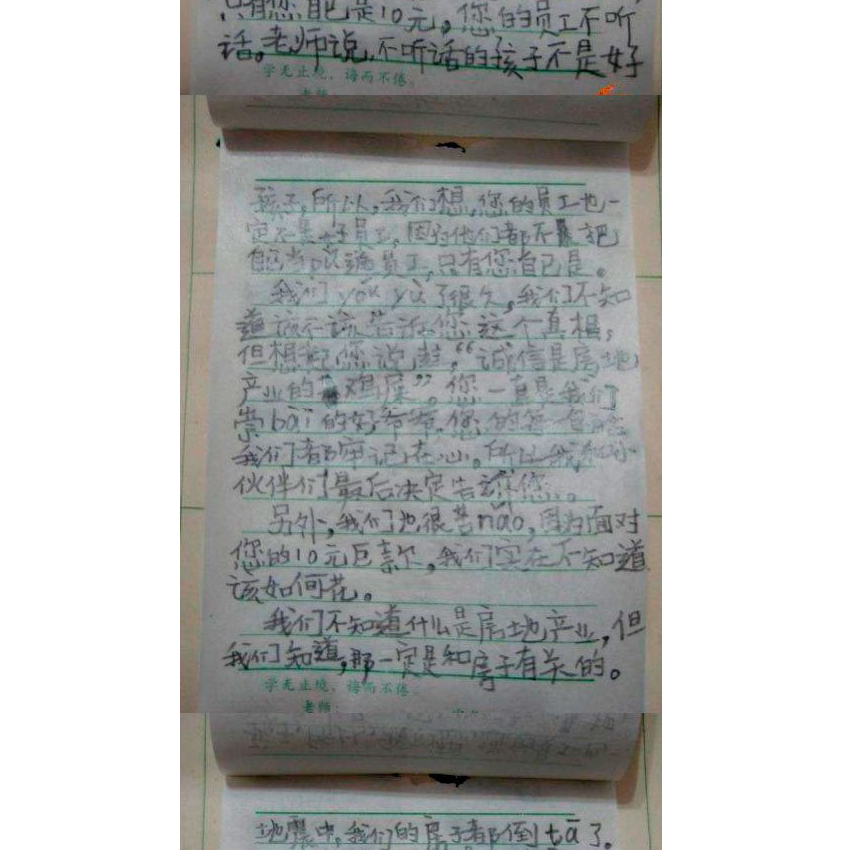 只有您自己是10元。您的员工不听
话。老师说,不听话的孩子不是好
学无止境,诲而不倦.
老师
孩子,所以,我们想,您的员工也一
定不是好员工,因为他们都不把
自己当吃滴员工,只有您自己是。
我们yóu yù了很久,我们不知
道该不该告诉您这个真相,
但想起您说过,“诚信是房地
产业的鸡屎”。您一直是我们
崇bài的好爷爷,您的每一句话
我们都牢记在心。所以我和小
伙伴们最后决定告诉您。
另外,我们也很苦nǎo,因为面对
您的10元巨款,我们实在不知道
该如何花。
我们不知道什么是房地产业,但
我们知道,那一定是和房子有关的。
学无止境,诲而不倦
老师:
地震中,我们的房子都倒tā了。